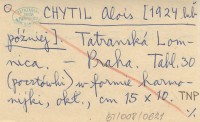 CHYTIL Alois [1924 lub
później]. Tatranská Lom-
nica. — Praha. Tabl. 30
(pocztówki) w formie harmo-
nijki, okł., cm 15 x 10. TNP